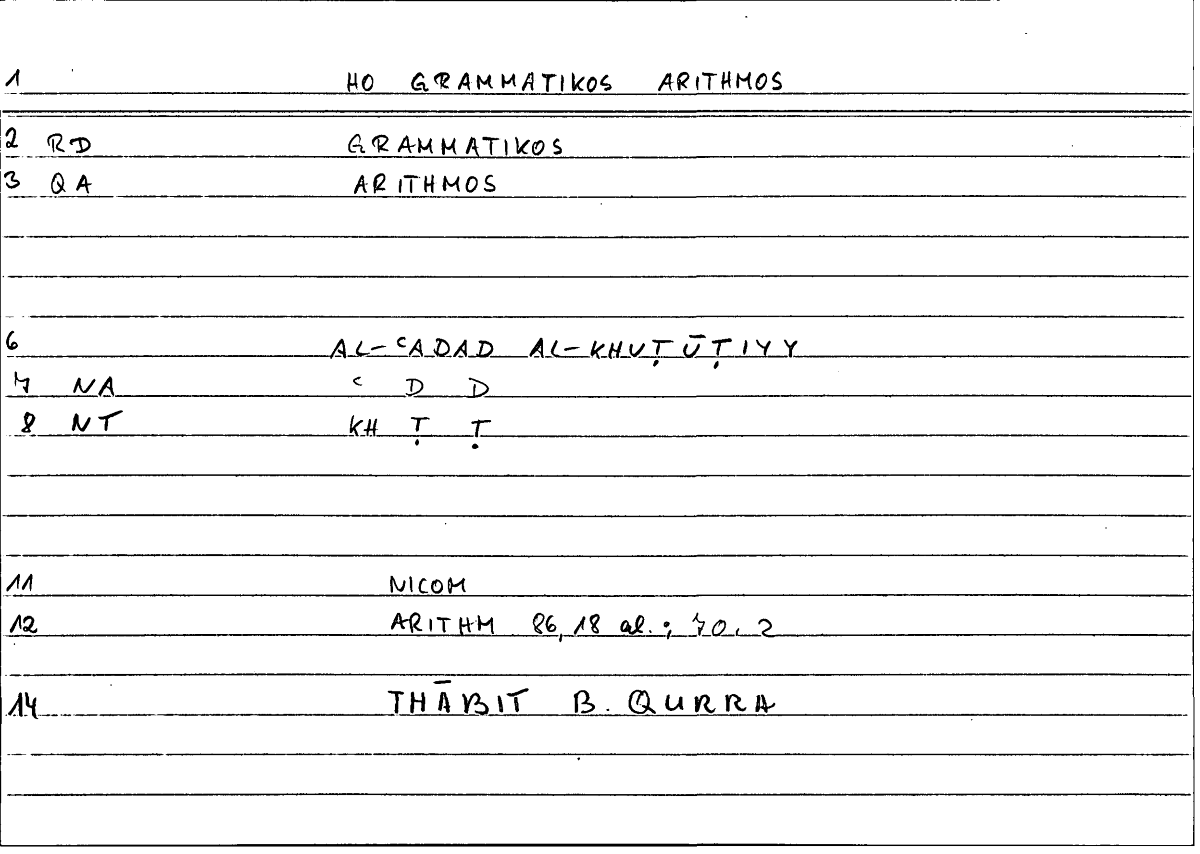 1 HO GRAMMATIKOS ARITHMOS
2 RD GRAMMATIKOS
3 QA ARITHMOS
6 AL-ʿADAD AL-KHUṬŪṬIYY
7 NA ʿ D D
8 NT KH Ṭ Ṭ
11 NICOM
12 ARITHM 86,18 al.; 70.2
14 THĀBIT B. QURRA